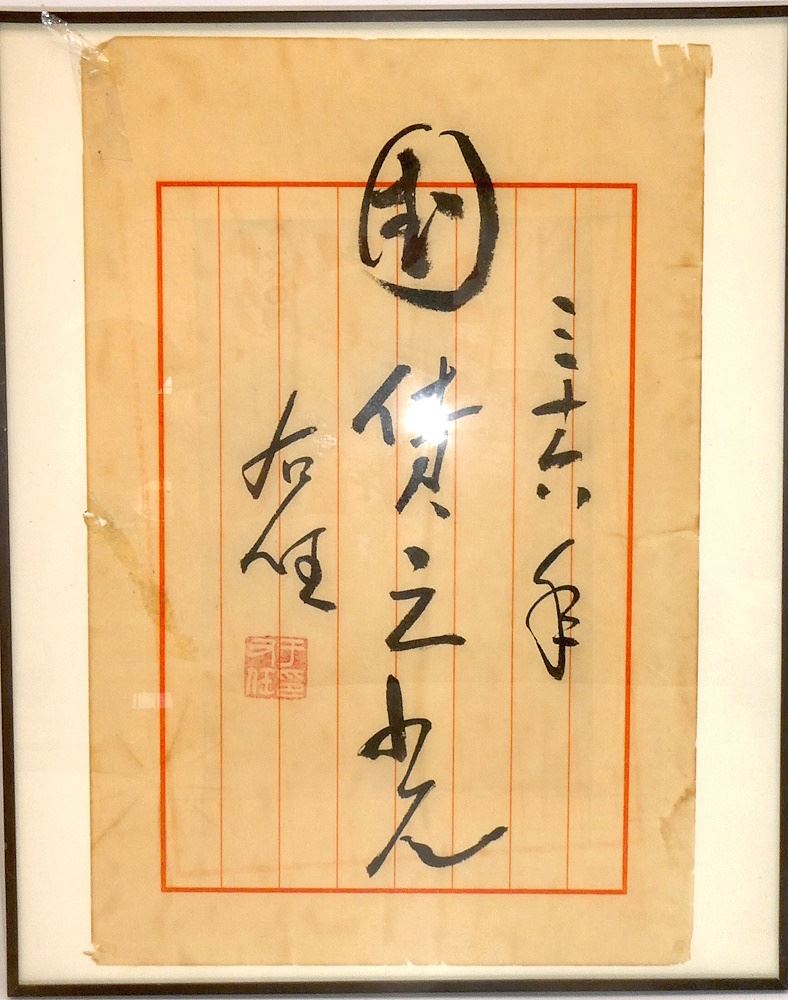 三十六年
國貨之光
右任
于印右任